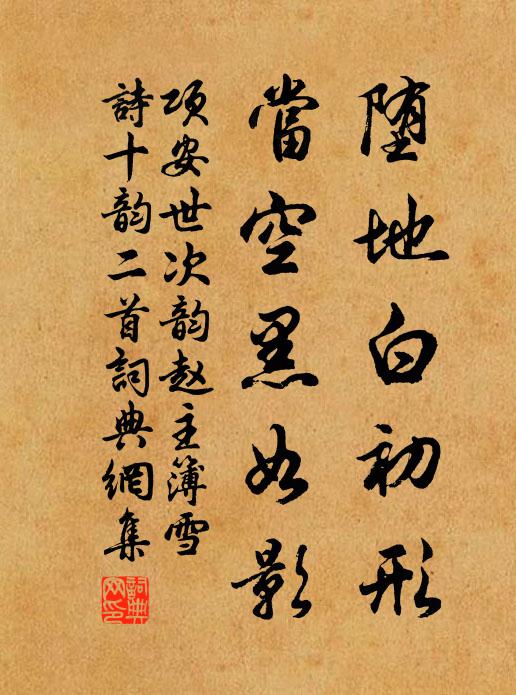 堕地白初形
當空黑如影
项安世次韵赵主簿雪
詩十韵二首詞典網集
詞典网印